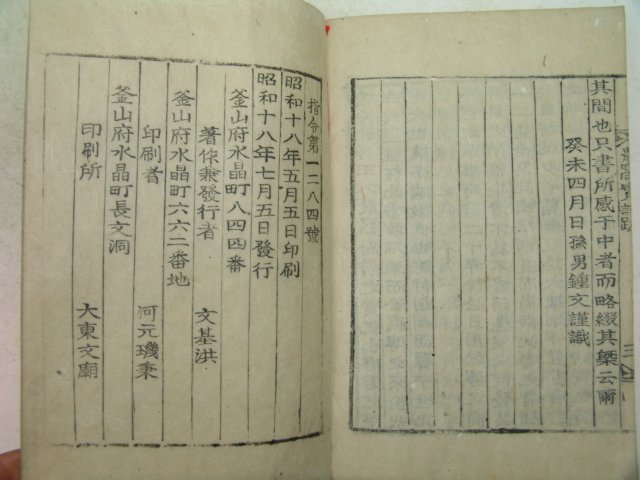 其間也只書所感于中者而略綴其槩云爾
癸未四月日孫男鍾文謹識
三
指令第一二八四號
昭和十八年五月五日印刷
昭和十八年七月五日發行
釜山府水晶町八四四番
著作兼發行者 文基洪
釜山府水晶町六六二番地
印刷者 河元璣秉
釜山府水晶町長文洞
印刷所 大東文廟